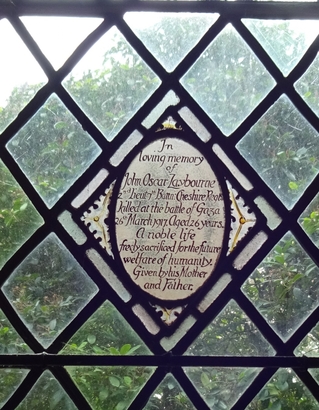 In
loving memory
of
John Oscar Laybourne
2nd Lieut 7th Battn Cheshire Regt
killed at the battle of Gaza
26th March 1917. Aged 26 years.
A noble life
freely sacrificed for the future
welfare of humanity.
Given by his Mother
and Father.